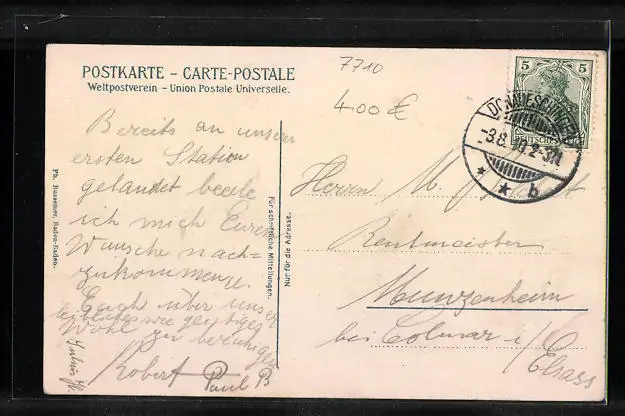 POSTKARTE – CARTE-POSTALE
Weltpostverein – Union Postale Universelle.
7710
400 €
Bereits an unsern
ersten Station
gelandet beeile
ich mich Euren
Wunsche nach-
zukommen u.
Euch über unser
leibliches wie geistiges
Wohl zu beruhigen
Robert Paul B
Julius
Ph. Bussemer, Baden-Baden.
Für schriftliche Mitteilungen.
Nur für die Adresse.
5 5
DEUTSCHES
DONAUESCHINGEN
3.8. 2-3N
* * b
Herrn M.
Rentmeister
Munzenheim
bei Colmar i/
Elsass